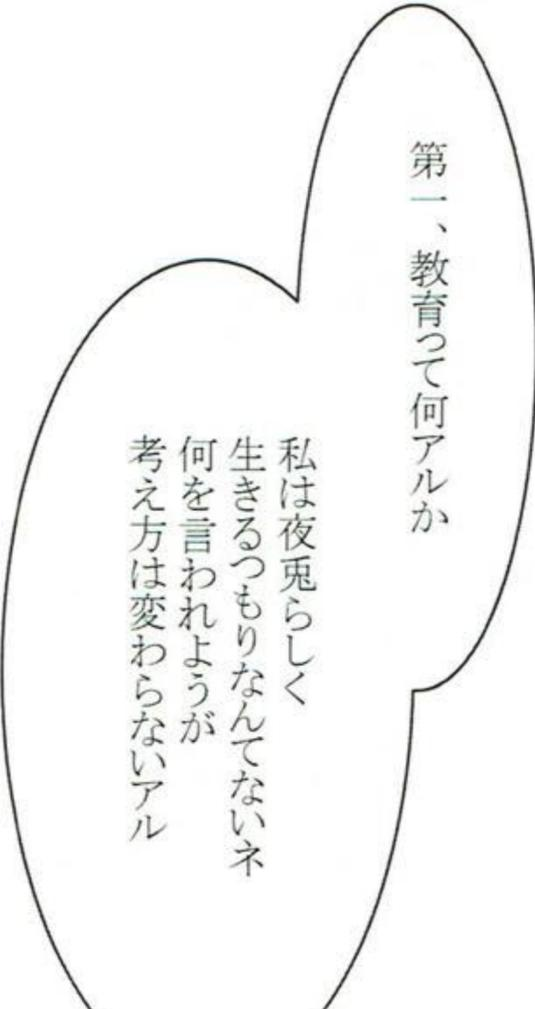 第一、教育って何アルか
私は夜兎らしく
生きるつもりなんてないネ
何を言われようが
考え方は変わらないアル